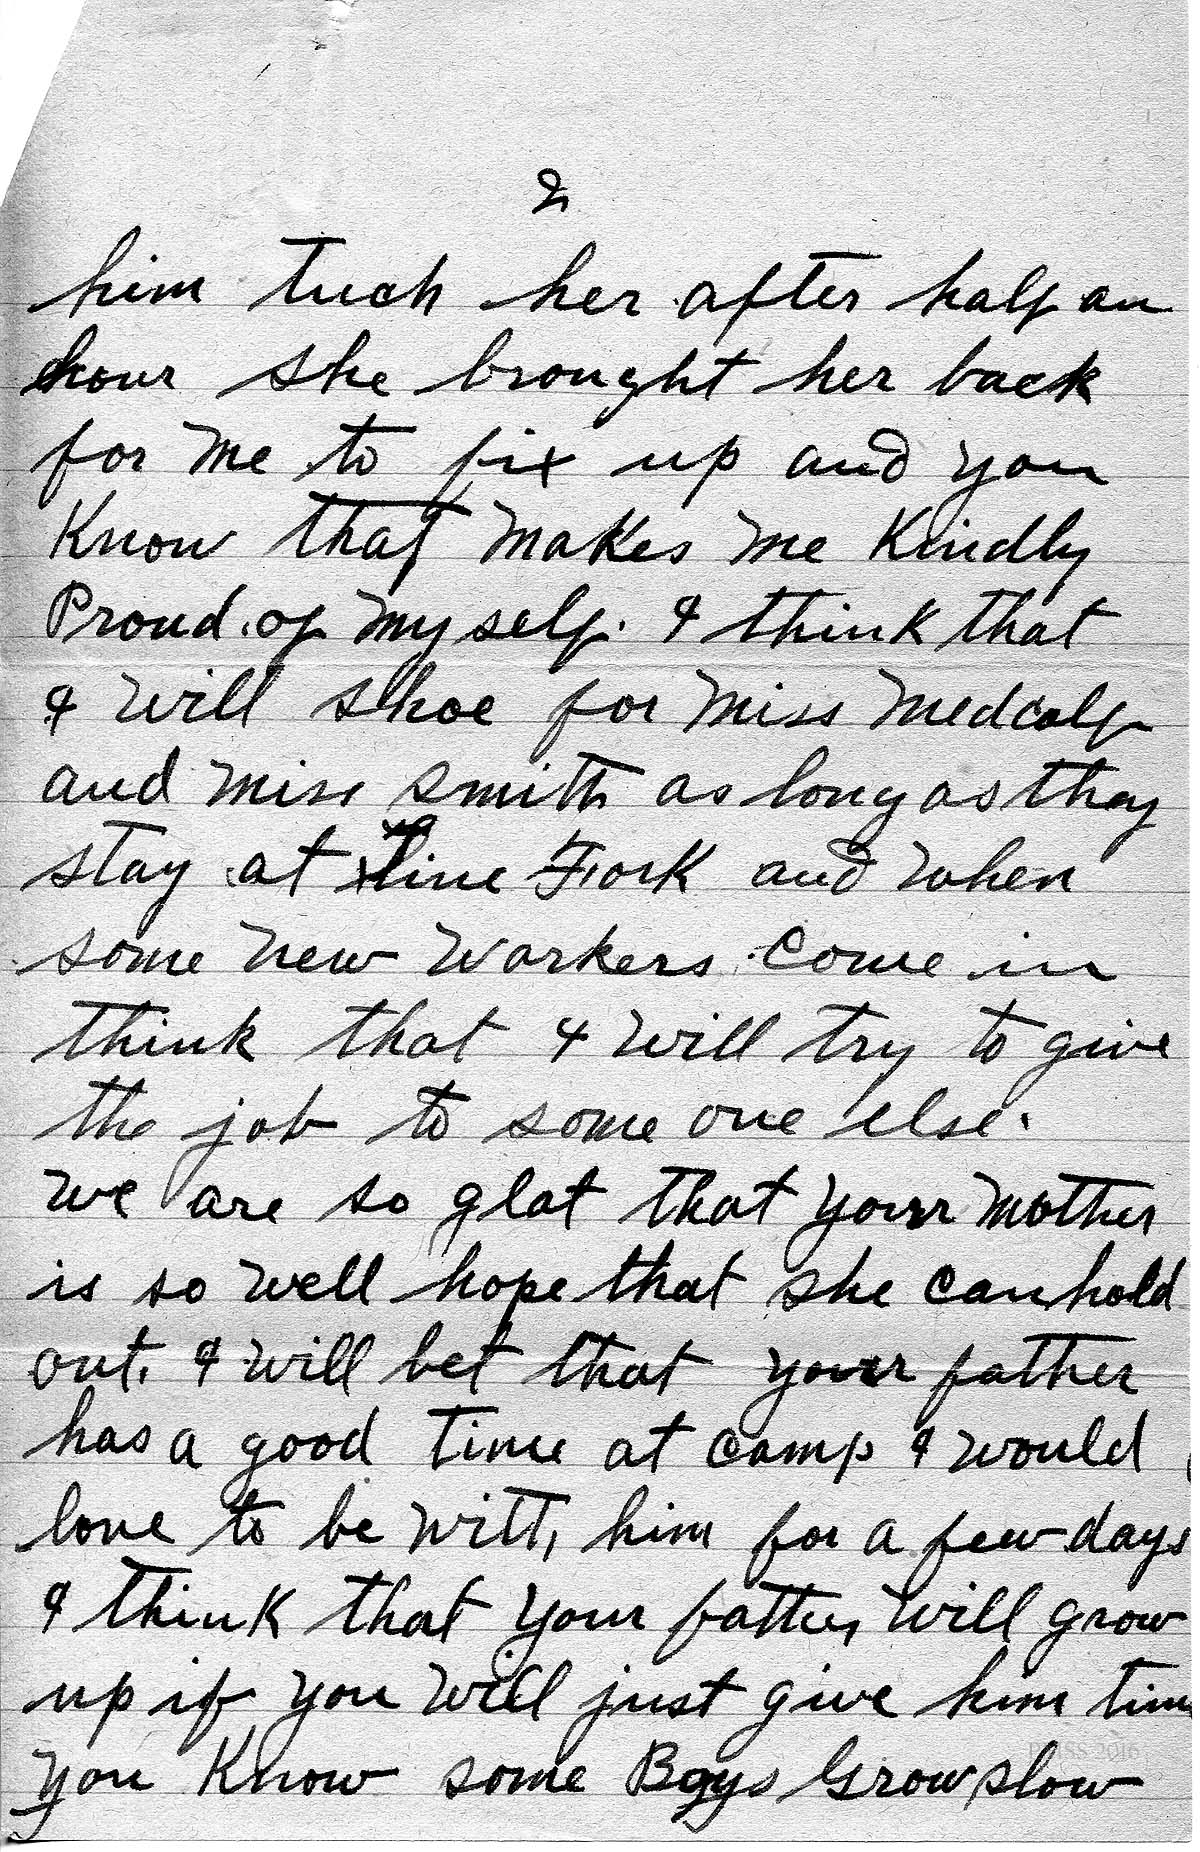 2
him tuch her after half an
hour she brought her back
for me to fix up and you
Know that makes me Kindly
Proud of my self. I think that
I will shoe for Miss Medcalf
and Miss Smith as long as they
stay at Line Fork and when
some new workers come in
think that I will try to give
the job to some one else.
we are so glat that your mother
is so well hope that she can hold
out. I will bet that your father
has a good time at camp I would
love to be with him for a few days
I think that your father will grow
up if you will just give him time
you Know some Boys Grow slow